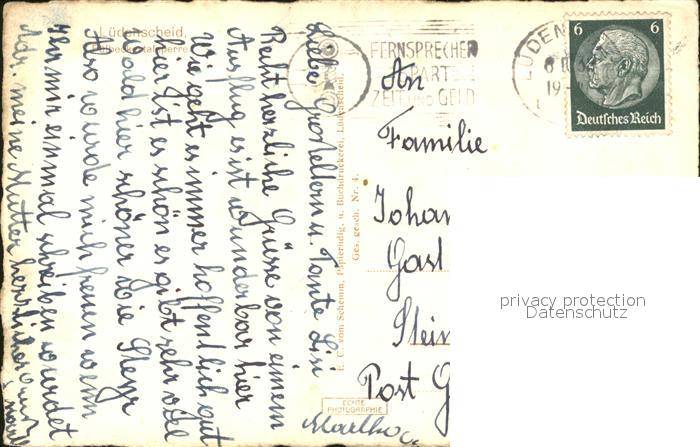 Lüdenscheid,
Fülbecketalsperre
Liebe Großeltern u. Tante Lisi
Recht herzliche Grüsse von einem
Ausflug es ist wunderbar hier
Wie geht es immer hoffentlich gut
hier ist es schön es gibt sehr viel
Wald hier schöner wie Steyr
Also würde mich freuen wenn
Ihr mir einmal schreiben würdet
Adr. meine Mutter herzliche
Martha
E. C. vom Schemm, Papierhdlg. u. Buchdruckerei, Lüdenscheid.
Ges. gesch. Nr. 4.
ECHTE
PHOTOGRAPHIE
FERNSPRECHER
SPART
ZEIT UND GELD
LÜDEN
6 6
Deutsches Reich
An
Familie
Johan
Gast
Stein
Post G
privacy protection
Datenschutz